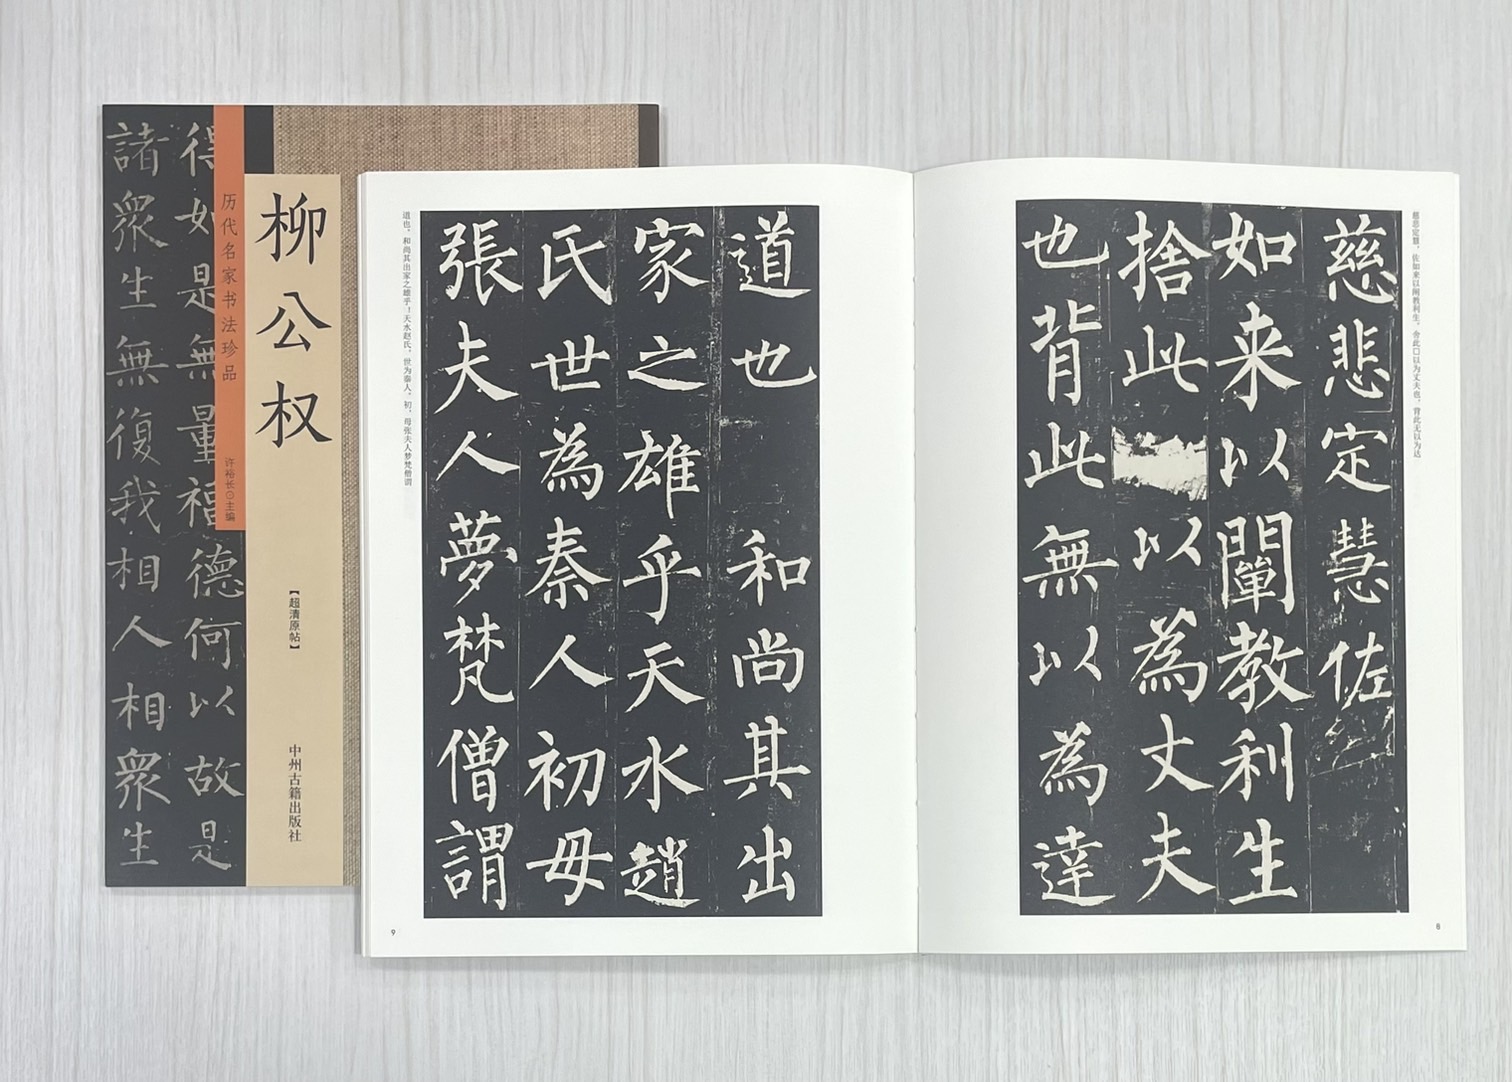 柳公权
【超清原帖】
中州古籍出版社
历代名家书法珍品
许裕长⊙主编
得如是無量福德何以故是
諸衆生無復我相人相衆生
慈悲定慧，佐如来以阐教利生。舍此口以为丈夫也，背此无以为达
慈悲定慧佐
如来以闡教利生
捨此以為丈夫
也背此無以為達
8
道也 和尚其出
家之雄乎天水趙
氏世為秦人初母
張夫人夢梵僧謂
道也。和尚其出家之雄乎！天水赵氏，世为秦人。初，母张夫人梦梵僧谓
9